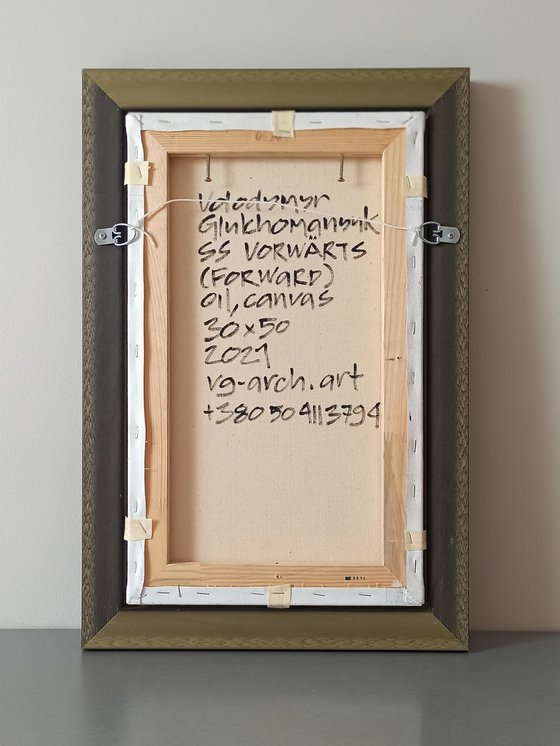 Volodymyr
Glukhomanyuk
SS VORWÄRTS
(FORWARD)
oil, canvas
30x50
2021
vg-arch.art
+380 50 4113794